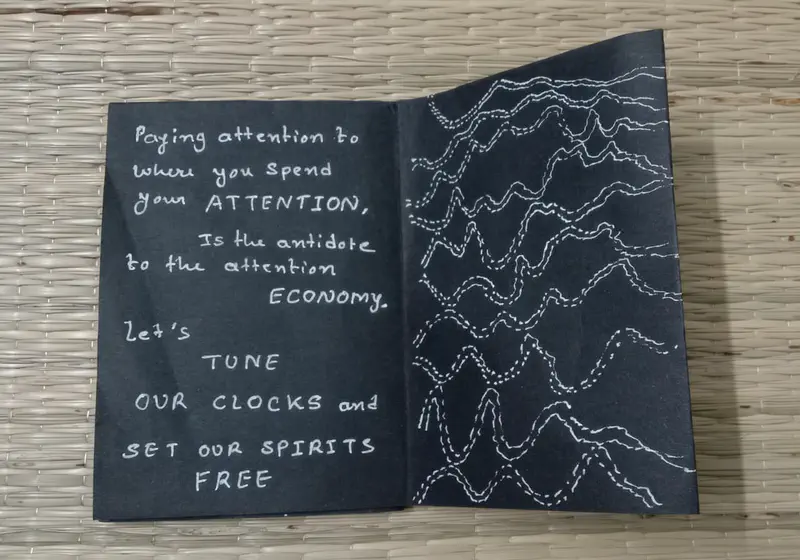 Paying attention to
where you spend
your ATTENTION,
Is the antidote
to the attention
ECONOMY.
Let's
TUNE
OUR CLOCKS and
SET OUR SPIRITS
FREE